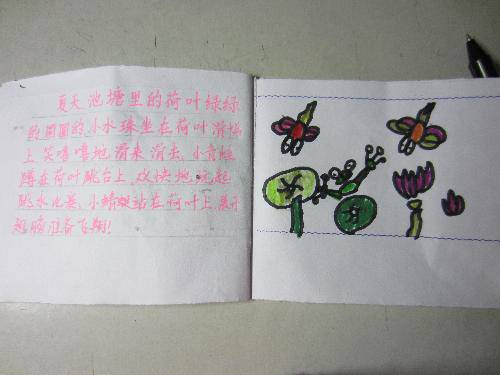 夏天池塘里的荷叶绿绿
的圆圆的小水珠坐在荷叶滑梯
上笑嘻嘻地滑来滑去,小青蛙
蹲在荷叶跳台上,欢快地玩起
跳水比赛,小蜻蜓站在荷叶上,展开
翅膀准备飞翔!